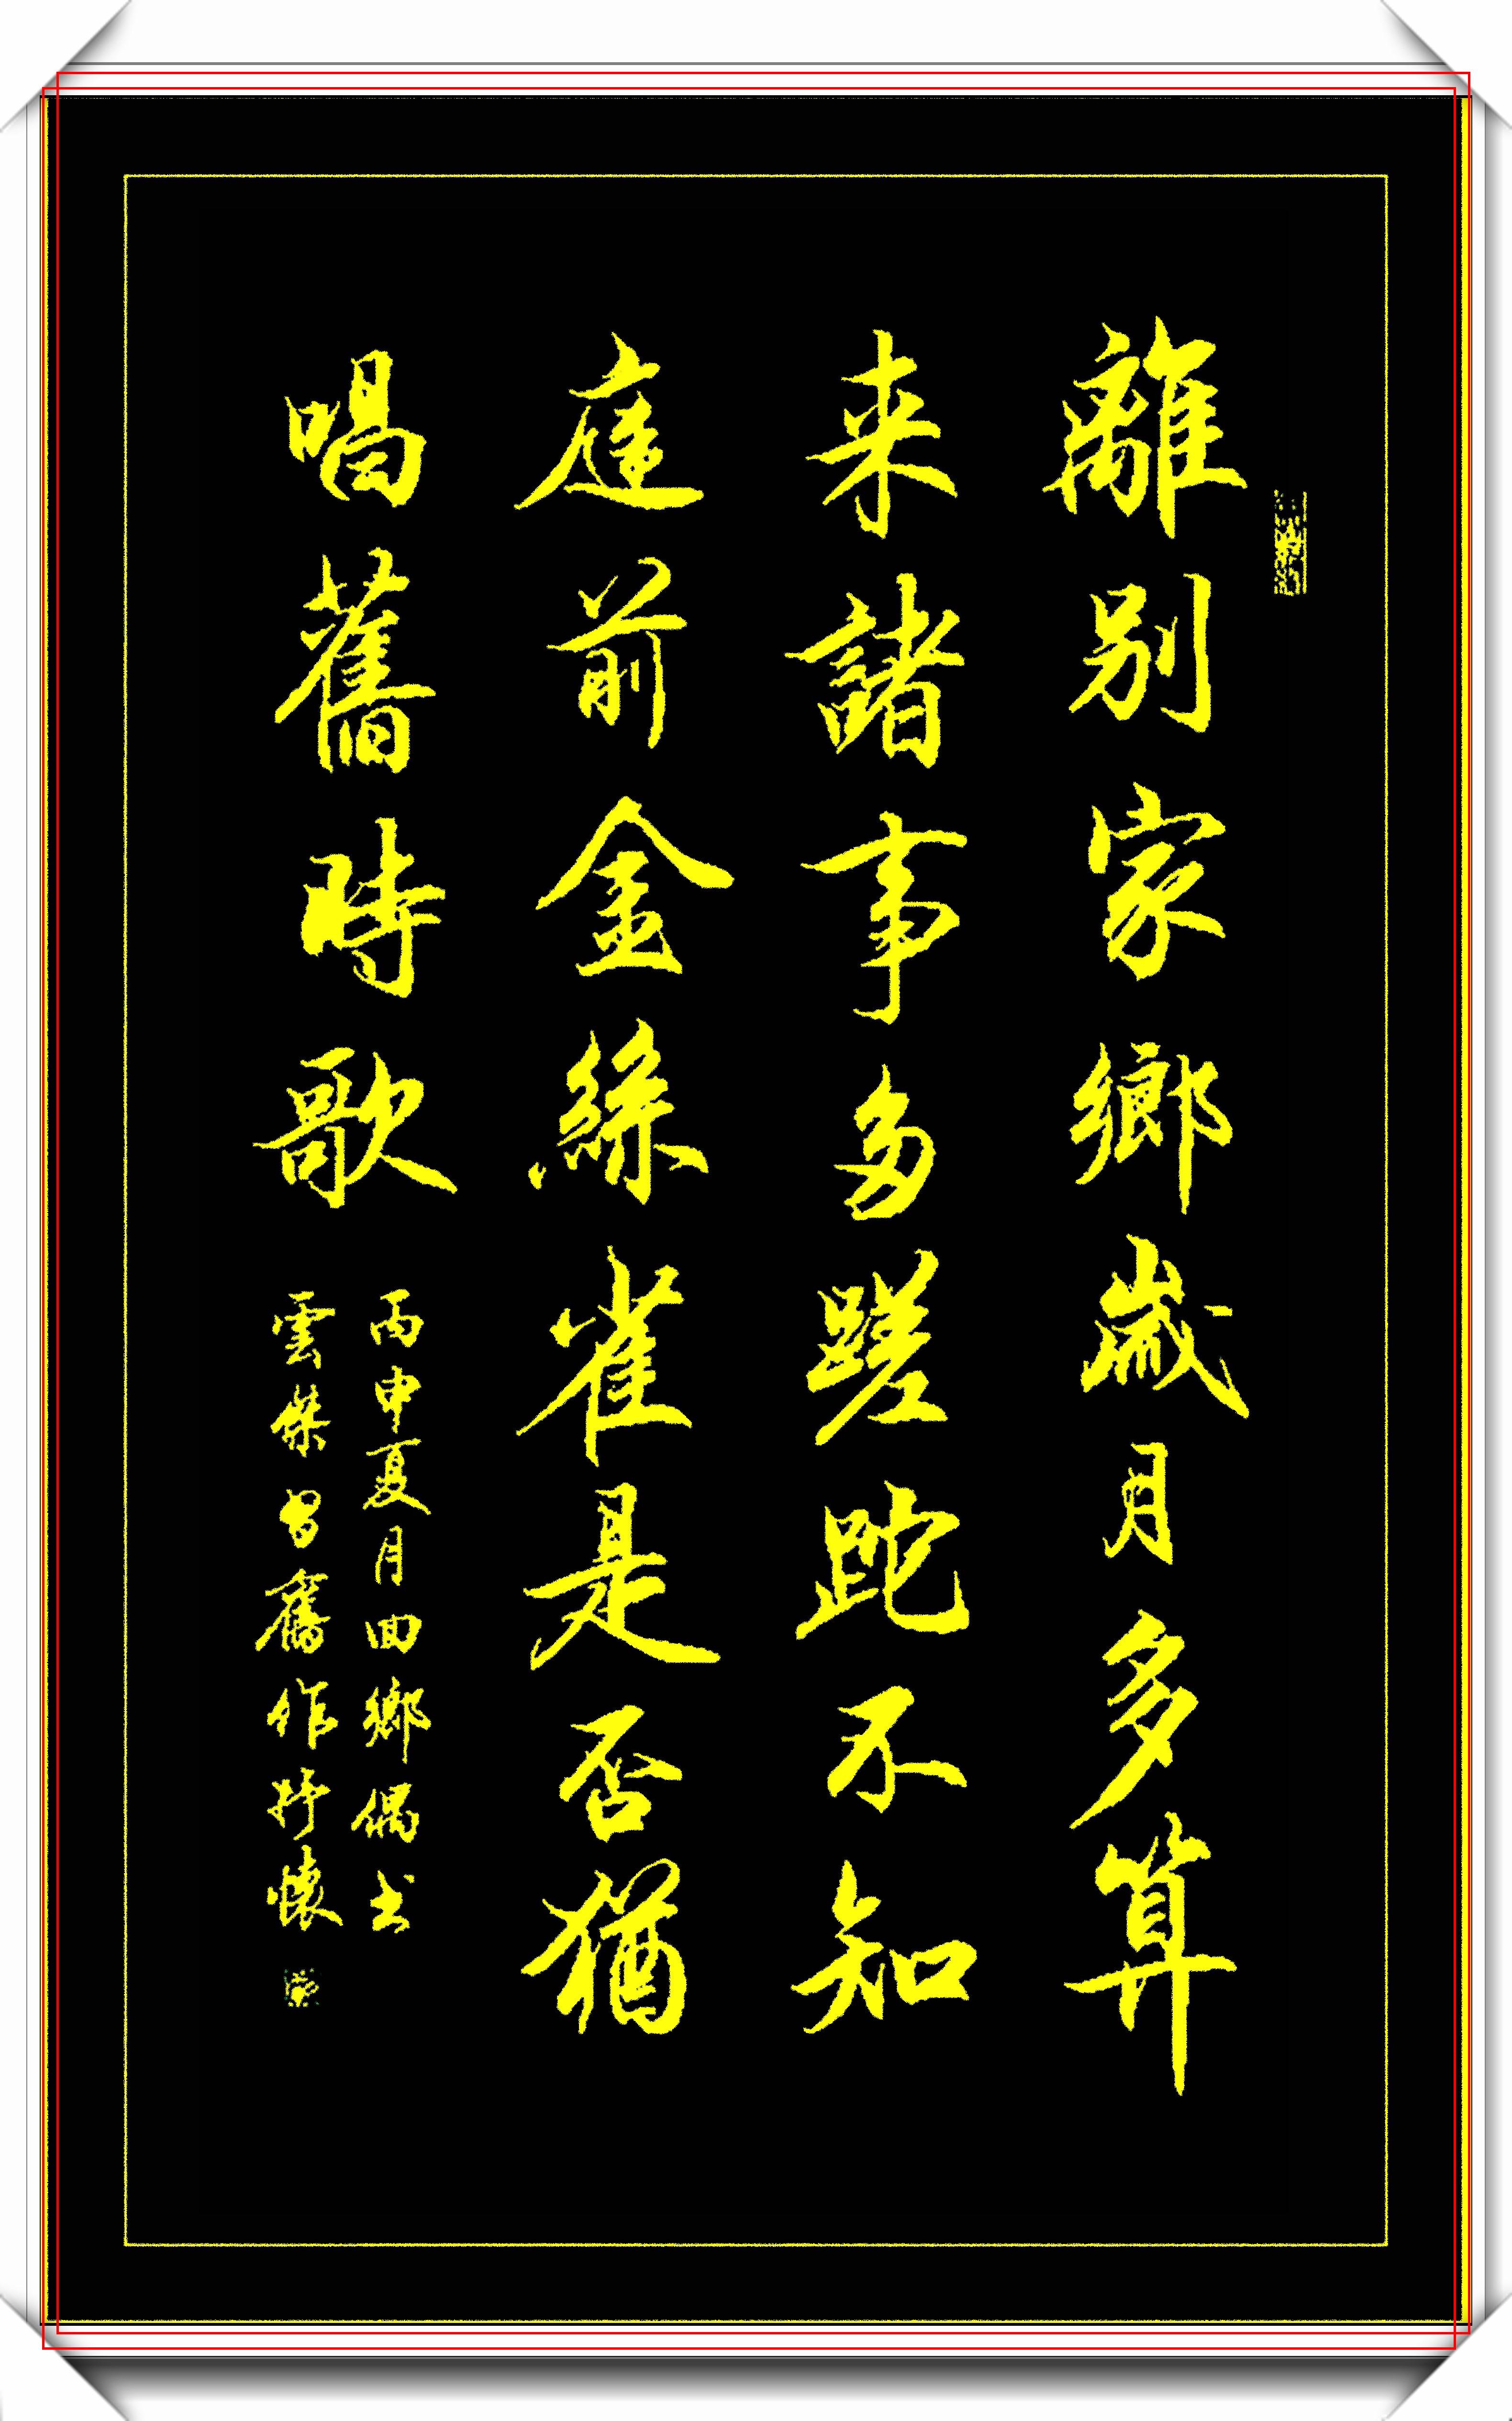 離別家鄉歲月多算
来諸事多蹉跎不知
庭前金絲雀是否猶
唱舊時歌
丙申夏月回鄉偶書
雲傑習舊作抒懷